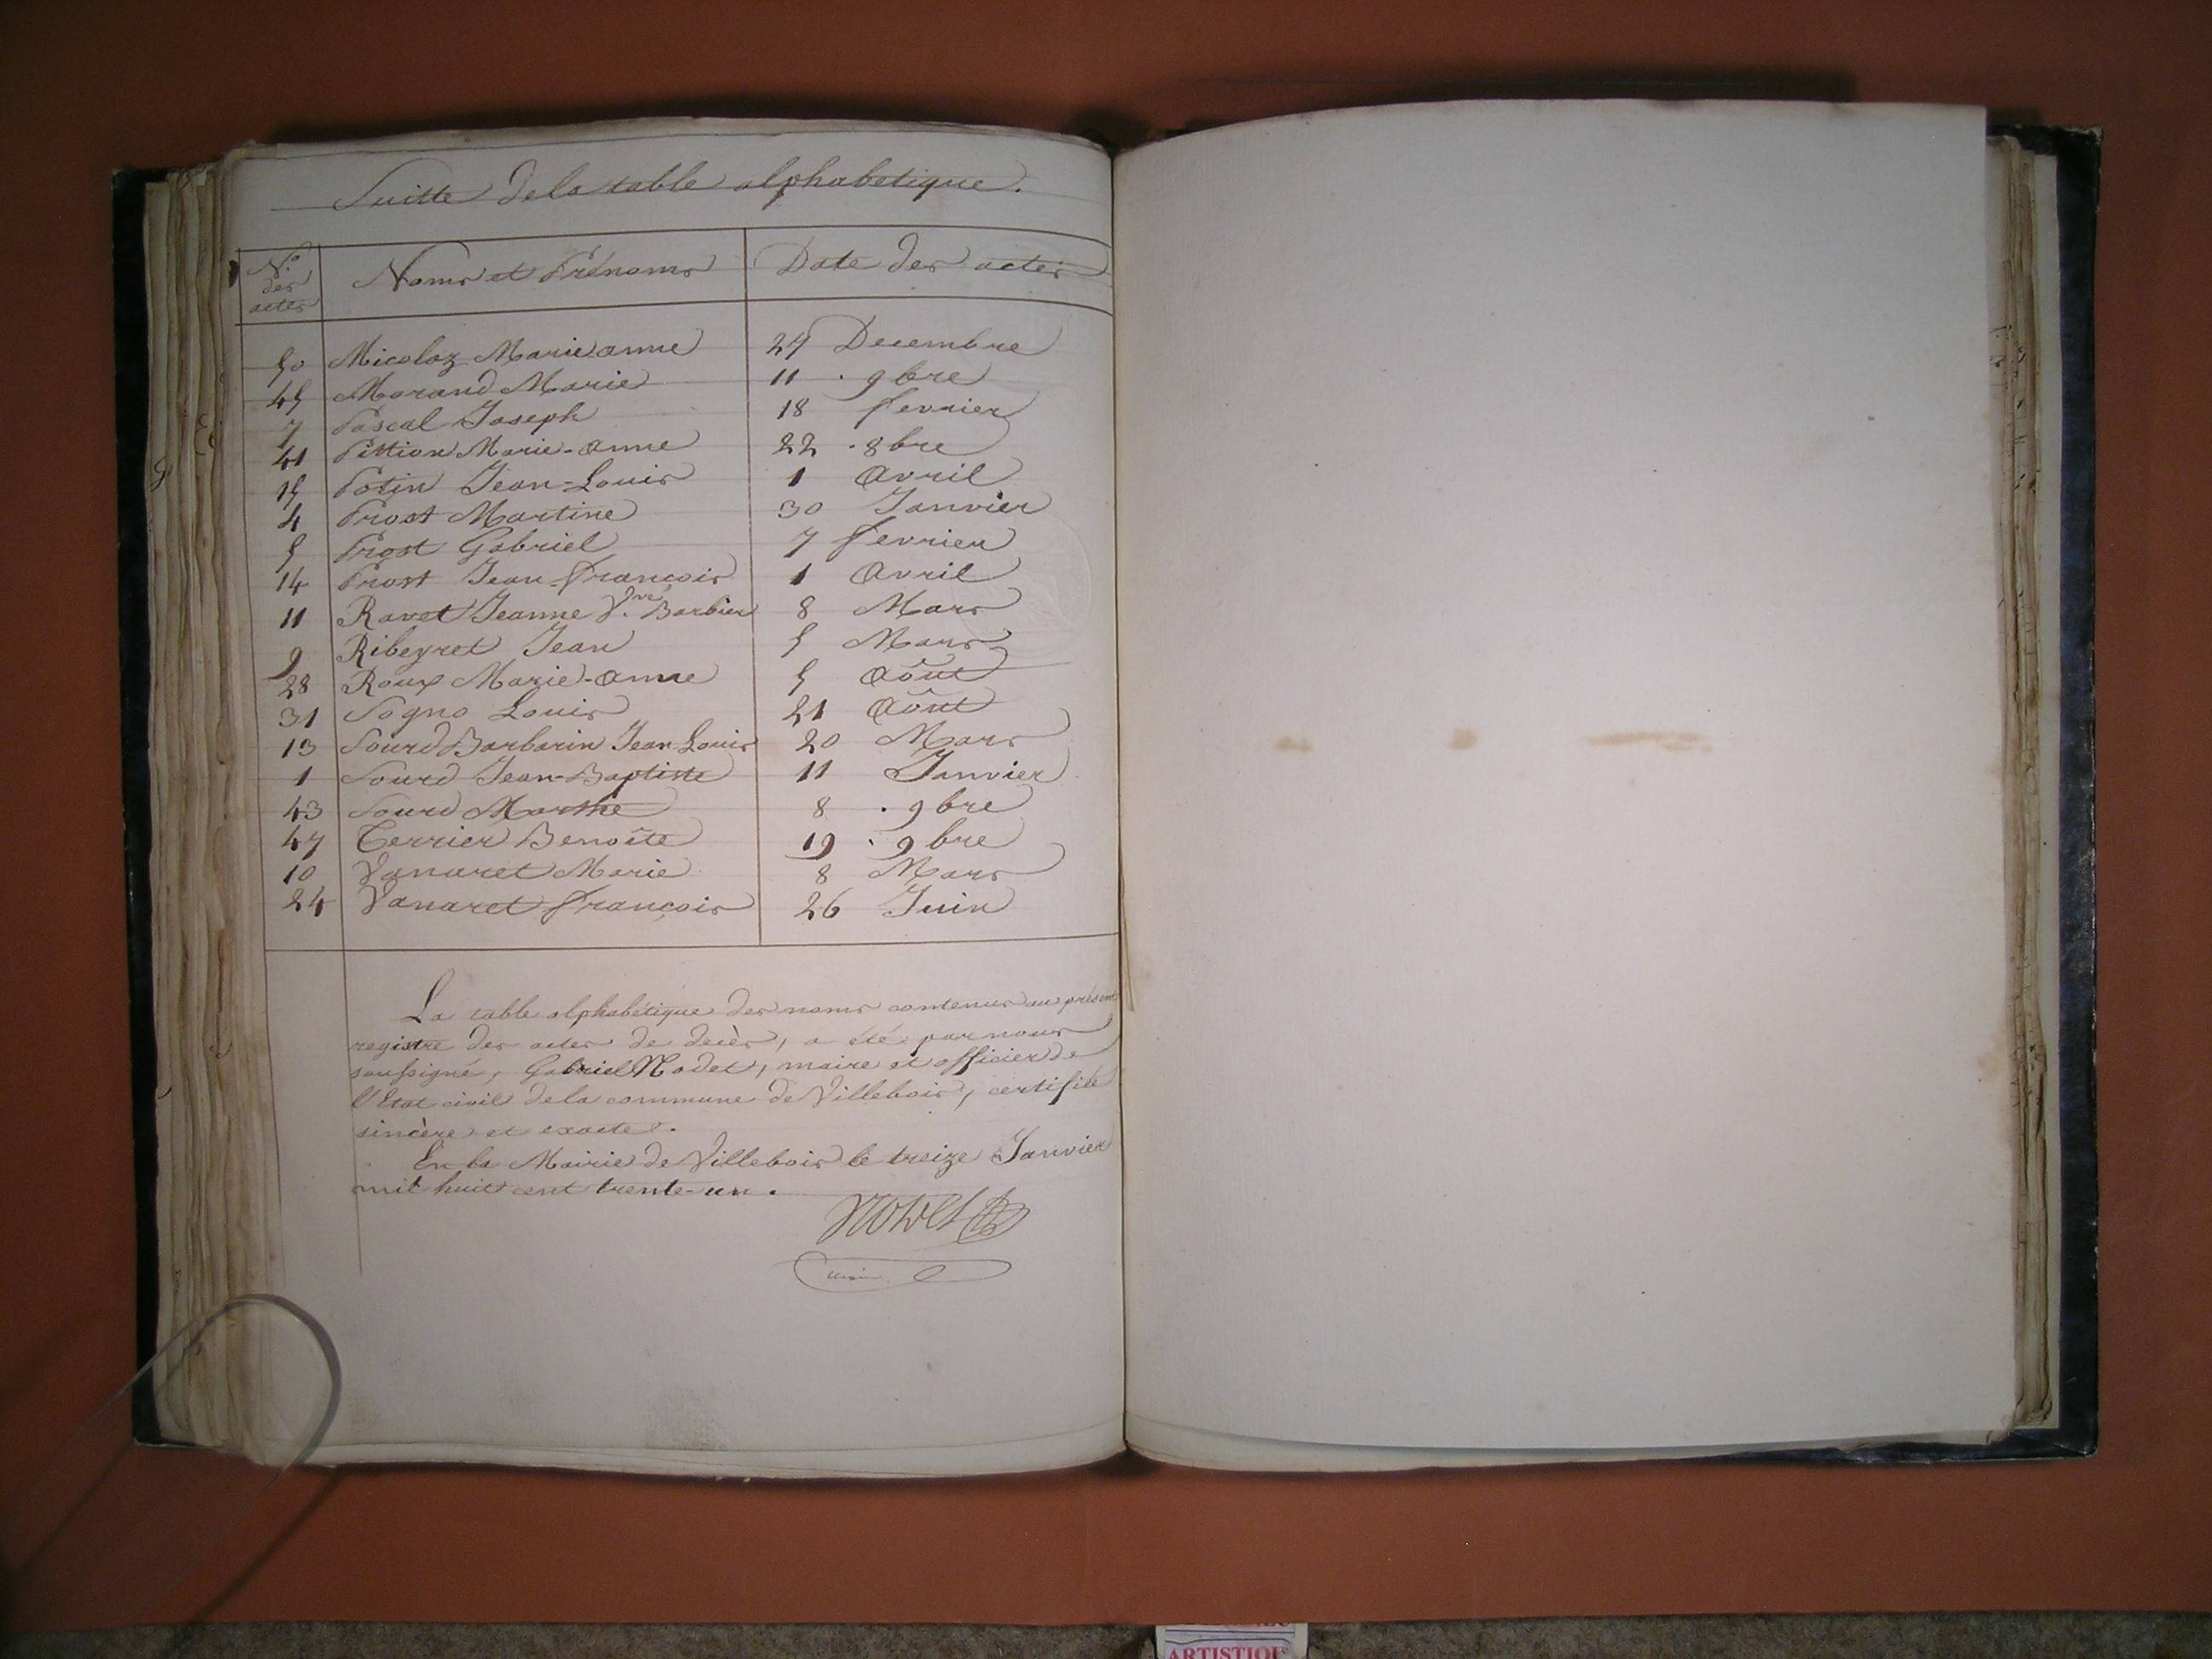 Suitte de la table alphabetique.
N.o des actes | Noms et Prénoms | Date des actes
50 Micoloz Marie anne 27 Decembre
45 Morand Marie 11 . 9bre
7 Pascal Joseph 18 fevrier
41 Pittion Marie-anne 22 . 8bre
15 Potin Jean-Louis 1 avril
4 Prost Martine 30 Janvier
5 Prost Gabriel 7 fevrier
14 Prost Jean-françois 1 avril
11 Ravet Jeanne V.ve Barbier 8 Mars
9 Ribeyret Jean 5 Mars
28 Roux Marie-anne 5 Août
31 Sogno Louis 21 Août
13 Sourd Barbarin Jean-Louis 20 Mars
1 Sourd Jean-Baptiste 11 Janvier
43 Sourd Marthe 8 . 9bre
47 Terrier Benoîte 19 . 9bre
10 Vanaret Marie 8 Mars
24 Vanaret françois 26 Juin
La table alphabétique des noms contenus au présent
registre des actes de décès, a été par nous
soussigné, Gabriel Nodet, maire et officier de
l'Etat civil de la commune de Villebois, certifié
sincère et exacte.
En la Mairie de Villebois le treize Janvier
mil huit cent trente-un.
Nodet
maire
ARTISTIQUE